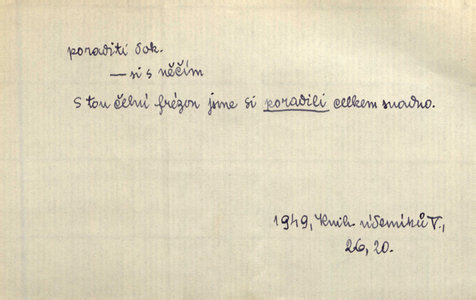 poraditi dok.
— si s něčím
S tou čelní frézou jsme si poradili celkem snadno.
1949, Knih. úderníků V.,
26, 20.